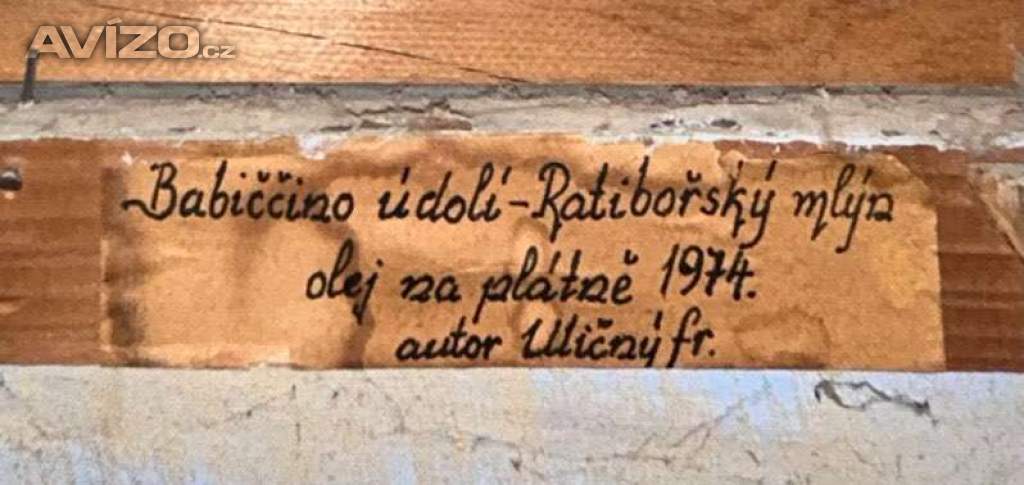 AVÍZO.cz
Babiččino údolí-Ratibořský mlýn
olej na plátně 1974.
autor Uličný fr.